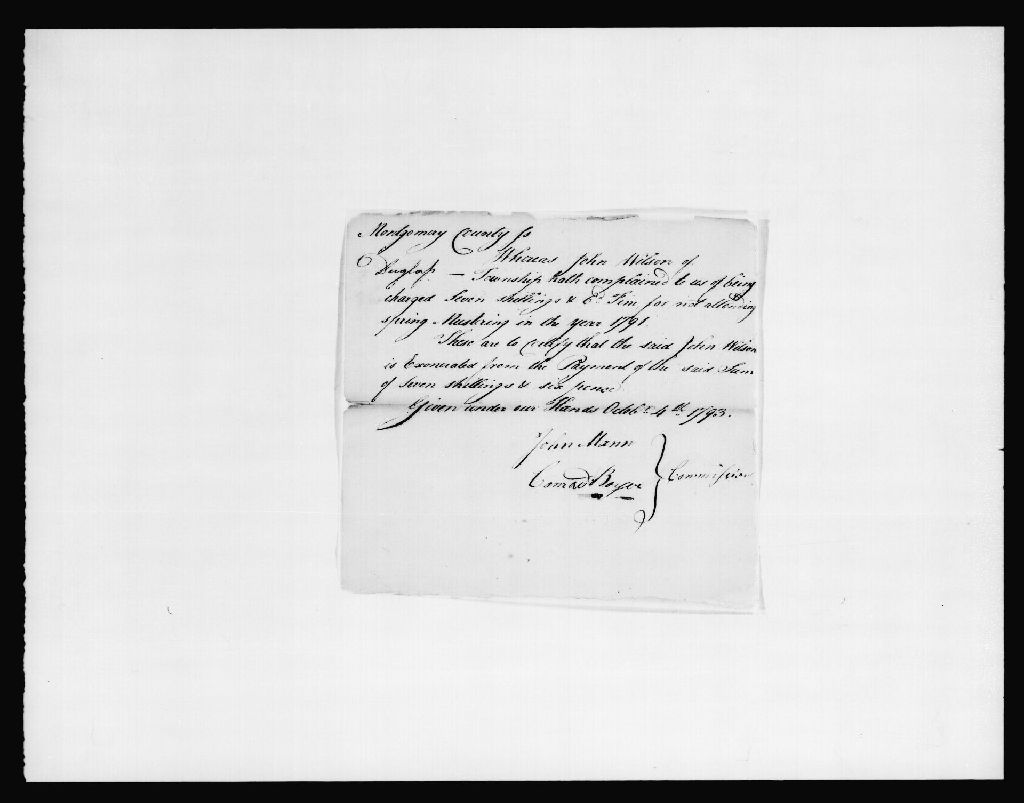 Montgomery County ss
Whereas John Wilson of
Duglass — Township hath complained to us of being
charged Seven shillings & 6d Fine for not attending
spring Mustering in the year 1791.
These are to certify that the said John Wilson
is Exonerated from the Payment of the said Sum
of seven shillings & six pence
Given under our Hands Octbr 4th 1793.
John Mann
Conrad Boyer } Commissior